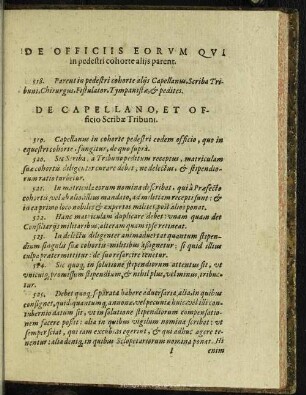 DE OFFICIIS EORVM QVI
in pedestri cohorte alijs parent.
518. Parent in pedestri cohorte alijs Capellanus, Scriba Tri-
buni, Chirurgus, Fistulator, Tympanistæ, & pedites.
DE CAPELLANO, ET OF-
ficio Scribæ Tribuni.
519. Capellanus in cohorte pedestri eodem officio, quo in
equestri cohorte, fungitur, de quo suprà.
520. Sit Scriba, à Tribuno peditum receptus, matriculam
suæ cohortis diligenter curare debet, ne delectus, & stipendio-
rum ratio turbetur.
521. In matricula eorum nomina describat, qui à Præfecto
cohortis vel ab alio eius mandato, ad militem recepti sunt: &
in ex primo loco nobiles & expertos milites post alios ponat.
522. Hanc matriculam duplicare debet: vnam quam det
Consiliarijs militaribus, alteram quam ipse retineat.
523. In delectu diligenter animaduertat quantum stipen-
dium singulis suæ cohortis militibus assignetur: si quid illius
culpa prætermittitur: de suo resarcire tenetur.
524. Sic quoque in solutione stipendiorum attentus sit, vt
vnicuique promissum stipendium, & nihil plus, vel minus, tribua-
tur.
525. Debet quoque separata habere aduersaria, alia in quibus
consignet, quid, quantum, annonæ, vel pecuniæ huic vel illi con-
tubernio datum sit, vt in solutione stipendiorum compensatio-
nem facere possit: alia in quibus vigilum nomina scribat: vt
semper sciat, qui iam excubias egerint, & qui adhuc agere te-
neantur: alia denique, in quibus Sclopetariorum nomina ponat. Hi
I
enim